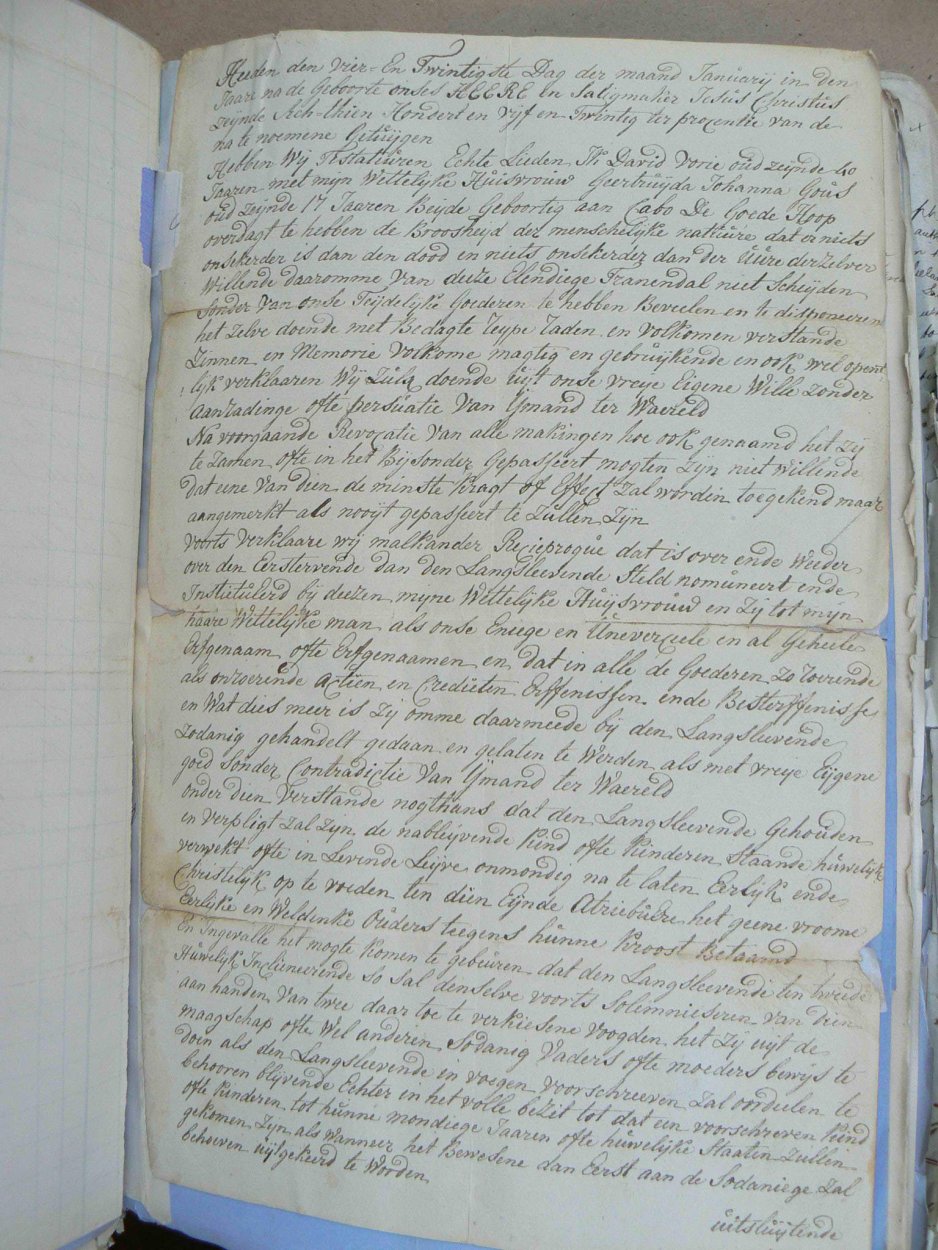 Heeden den Vier-En Twintigste Dag der maand Januarij in den
Jaare na de Geboorte onses HEERE En Saligmaker Jesus Christus
zeijnde Ach-thien Hondert en vijf en Twintig ter precentie van de
na te noemene Getuijgen
Hebben Wij Testatuuren Echte Lieden Th David Vorie oud zeijnde 40
Jaaren met mijn Wettelijke Huisvrouw Geertruijda Johanna Gous
oud zeijnde 17 Jaaren Beijde Geboortig aan Cabo De Goede Hoop
overdagt te hebben de Broosheijd der menschelijke nathure dat er niets
onsekerder is dan den dood en niets onsekerder dan der Uure derzelver
Willende daaromme van deeze Elendiege Tranendal niet Scheijden
Sonder Van onse Teijdelijke Goederen te hebben Beveelen en te disponeeren
het zelve doende met Bedagte Reype Raden en Volkomen verstande
Zinnen en Memorie Volkome magtig en gebruijkende en ook wel opent
lijk verklaaren Wij Zulx doende uijt onse vreije Eigene Wille zonder
Aanradinge ofte persuatie Van Ijmand ter Waereld
Na voorgaande Revocatie Van alle makingen hoe ook genaamd het zij
te zamen ofte in het Bijsonder Gepasseert mogten zijn niet willende
dat eene Van dien de minste Kragt of Effect Zal worden toegekend maar
aangemerkt als nooijt gepasseert te Zullen Zijn
Voorts Verklaare wij malkander Recieproque dat is over ende Weeder
over den Eerstervende dan den Langsleevende Steld nomineert ende
Instietuleerd bij deezen mijne Wettelijke Huijsvrouw en Zij tot mijn
haare Wettelijke man als onse Eniege en Uneverzeele en al Geheele
Erfgenaam ofte Erfgenaamen en dat in alle de Goederen zo Roerende
als onroerende Actien en Credieten Erffenissen ende Besterffenisse
en Wat dies meer is Zij omme daarmeede bij den Langsleevende
Zodanig gehandelt gedaan en gelaten te Werden als met vreije Eijgene
goed Sonder Contradictie Van Ijmand ter Waereld
onder dien Verstande nogthans dat den Langsleevende Gehouden
en Verpligt Zal Zijn de nablijvende Kind ofte Kinderen Staande huwelijk
verwekt ofte in Levende Leijve onmondig na te laten Eerlijk ende
Christelijk op te voeden ten dien Eijnde Atriebuere het geene vroome
Eerlijke en Weldenke Ouders teegens hunne Kroost Betaamd
En Ingevalle het mogte komen te gebeuren dat den Langsleevende ten tweede
Huwelijk Inclieneerende so sal denselve voorts Solemnieseren van dien
aan handen Van twee daar toe te verkiesene Voogden het Zij uijt de
maagschap ofte Wel anderen Sodanig Vaders ofte moeders bewijs te
doen als den Langsleevende in voegen voorschreeven Zal oordeelen te
behooren blijvende Echter in het volle bezit tot dat een voorschreven Kind
ofte Kinderen tot hunne mondiege Jaaren ofte huwelijke Staaten Zullen
gekomen Zijn als Wanneer het Bewesene dan Eerst aan de Sodaniege Zal
behooren uijtgekeerd te Worden
uitsluijtende